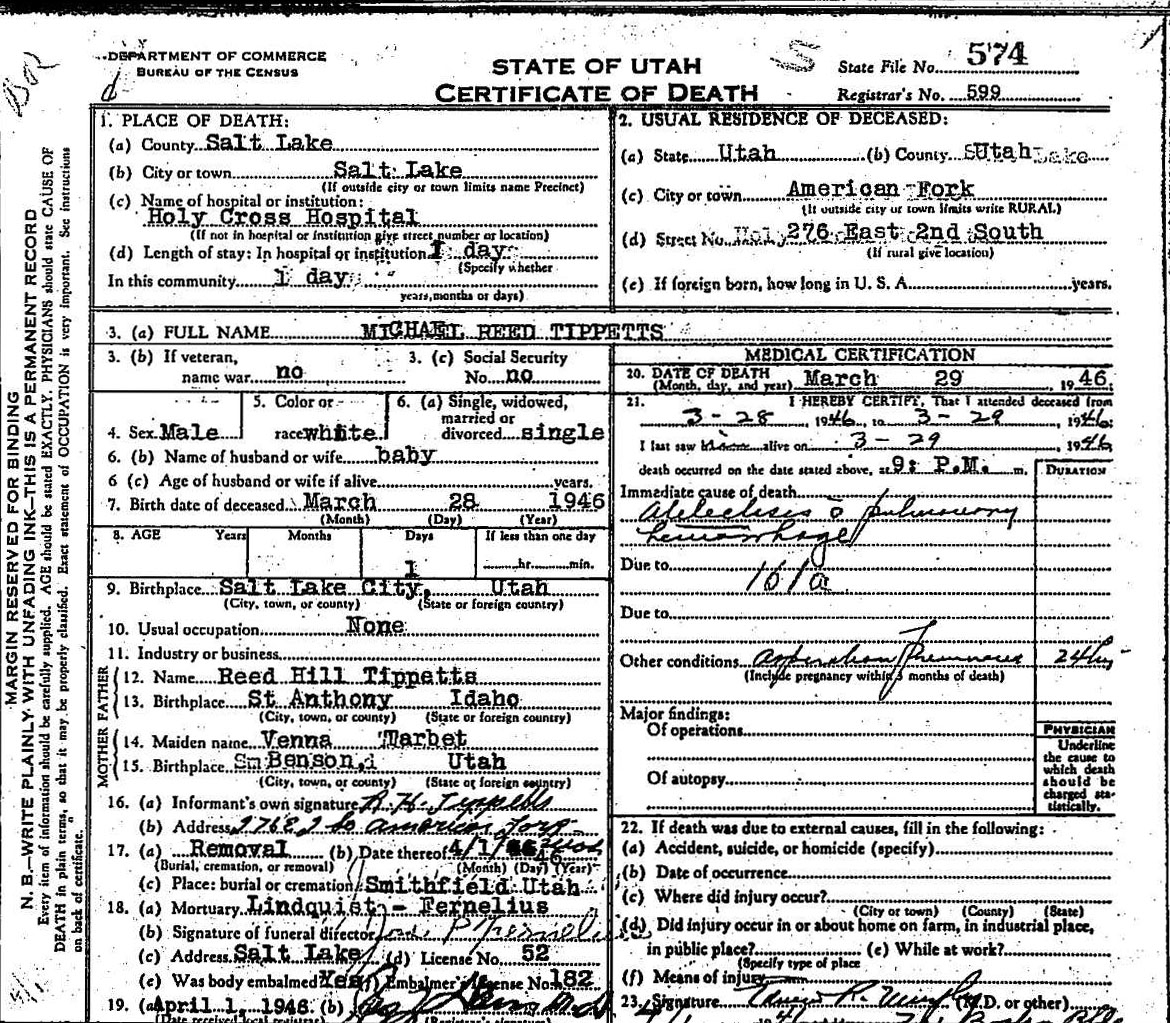 DEPARTMENT OF COMMERCE
BUREAU OF THE CENSUS
STATE OF UTAH
CERTIFICATE OF DEATH
State File No. 574
Registrar's No. 599
MARGIN RESERVED FOR BINDING
N. B.—WRITE PLAINLY WITH UNFADING INK—THIS IS A PERMANENT RECORD
Every item of information should be carefully supplied. AGE should be stated EXACTLY. PHYSICIANS should state CAUSE OF
DEATH in plain terms, so that it may be properly classified. Exact statement of OCCUPATION is very important. See instructions
on back of certificate.
1. PLACE OF DEATH:
(a) County Salt Lake
(b) City or town Salt Lake
(If outside city or town limits name Precinct)
(c) Name of hospital or institution:
Holy Cross Hospital
(If not in hospital or institution give street number or location)
(d) Length of stay: In hospital or institution 1 day
(Specify whether
In this community 1 day
years, months or days)
2. USUAL RESIDENCE OF DECEASED:
(a) State Utah (b) County Utah
(c) City or town American Fork
(If outside city or town limits write RURAL)
(d) Street No. 276 East 2nd South
(If rural give location)
(e) If foreign born, how long in U. S. A. years.
3. (a) FULL NAME MICHAEL REED TIPPETTS
3. (b) If veteran, 3. (c) Social Security
name war no No. no
5. Color or 6. (a) Single, widowed,
married or
4. Sex Male race white divorced single
6. (b) Name of husband or wife baby
6 (c) Age of husband or wife if alive years.
7. Birth date of deceased March 28 1946
(Month) (Day) (Year)
8. AGE Years Months Days If less than one day
1 hr. min.
9. Birthplace Salt Lake City, Utah
(City, town, or county) (State or foreign country)
10. Usual occupation None
11. Industry or business
FATHER
12. Name Reed Hill Tippetts
13. Birthplace St Anthony Idaho
(City, town, or county) (State or foreign country)
MOTHER
14. Maiden name Venna Tarbet
15. Birthplace Benson, Utah
(City, town, or county) (State or foreign country)
16. (a) Informant's own signature R. H. Tippetts
(b) Address 276 E 2 So American Fork
17. (a) Removal (b) Date thereof 4/1/46
(Burial, cremation, or removal) (Month) (Day) (Year)
(c) Place: burial or cremation Smithfield Utah
18. (a) Mortuary Lindquist - Fernelius
(b) Signature of funeral director
(c) Address Salt Lake (d) License No. 52
(e) Was body embalmed Yes (f) Embalmer's License No. 182
19. (a) April 1, 1946 (b)
(Date received local registrar) (Registrar's signature)
MEDICAL CERTIFICATION
20. DATE OF DEATH
(Month, day, and year) March 29, 1946
21. I HEREBY CERTIFY, That I attended deceased from
3-28, 1946, to 3-29, 1946;
I last saw him alive on 3-29 1946,
death occurred on the date stated above, at 9: P.M. m.
DURATION
Immediate cause of death
Atelectisis c̄ pulmonary
hemorrhage
Due to 161a
Due to
Other conditions aspiration Pneumonia 24 hrs
(Include pregnancy within 3 months of death)
Major findings:
Of operations
Of autopsy
PHYSICIAN
Underline
the cause to
which death
should be
charged sta-
tistically.
22. If death was due to external causes, fill in the following:
(a) Accident, suicide, or homicide (specify)
(b) Date of occurrence
(c) Where did injury occur?
(City or town) (County) (State)
(d) Did injury occur in or about home on farm, in industrial place,
in public place? (e) While at work?
(Specify type of place
(f) Means of injury
23. Signature (M.D. or other)